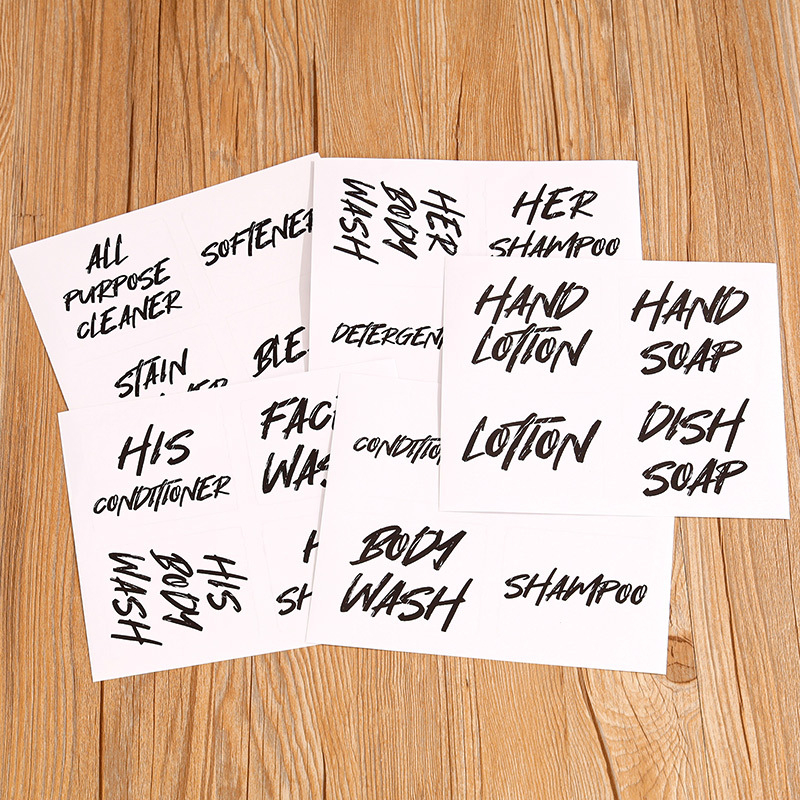 ALL
PURPOSE
CLEANER
SOFTENER
STAIN
HER
BODY
WASH
HER
SHAMPOO
DETERGENT
HAND
LOTION
HAND
SOAP
LOTION
DISH
SOAP
HIS
CONDITIONER
FAC
WAS
HIS
BODY
WASH
CONDITIO
BODY
WASH
SHAMPOO